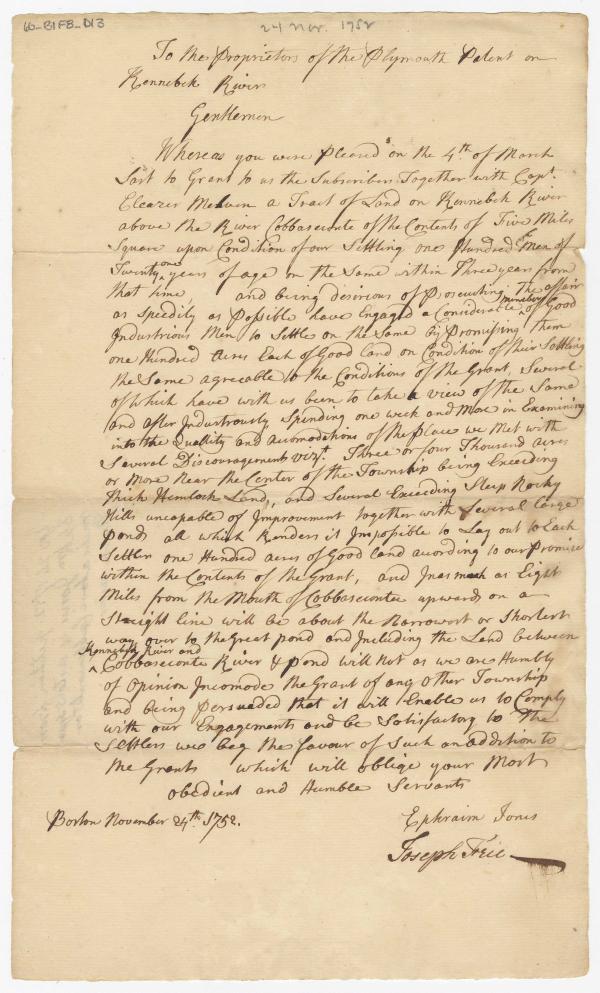 60-B1F8-D13
24 Nov. 1752
To the Proprietors of the Plymouth Patent on
Kennebek River
Gentlemen
Whereas you were Pleased on the 4th. of March
Last to Grant to us the Subscribers Together with Capt.
Eleazer Melven a Tract of Land on Kennebek River
above the River Cobbaseconte of the Contents of Five Miles
Square upon Condition of our Settling one Hundred Men of
Twenty one years of age on the Same within Three years from
that time and being desirious of Prosecuting the affair
as Speedily as Possible have Engaged a Considerable number of Good
Industrious Men to Settle on the Same by Promissing them
one Hundred acres Each of Good land on Condition of their Settling
the Same agreable to the Conditions of the Grant, Several
of Which have with us been to take a view of the Same
and after Industrously Spending one week and More in Examining
into the Quallity and acomodations of the Place we Met with
Several Discouragements vizt. Three or four Thousand acres
or More Near the Center of the Township being Exceeding
thick Hemlock Land, and Several Exceeding Steep Rocky
Hills uncapable of Improvement together with Several large
Ponds all which Renders it Impossible to Lay out to Each
Settler one Hundred acres of Good land acording to our Promise
within the Contents of the Grant, and Inasmuch as Eight
Miles from the Mouth of Cobbaseconte upwards on a
Straight line will be about the Narrowest or Shortest
way over to the Great pond and Including the Land between
Kennebek River and
Cobbaseconte River & Pond will Not as we are Humbly
of Opinion Incomode the Grant of any Other Township
and being Persuaded that it will Enable us to Comply
with our Engagements and be Satisfactory to the
Settlers we beg the favour of Such an addition to
the Grants which will oblige your Most
obedient and Humble Servants
Boston November 24th. 1752.
Ephraim Jones
Joseph